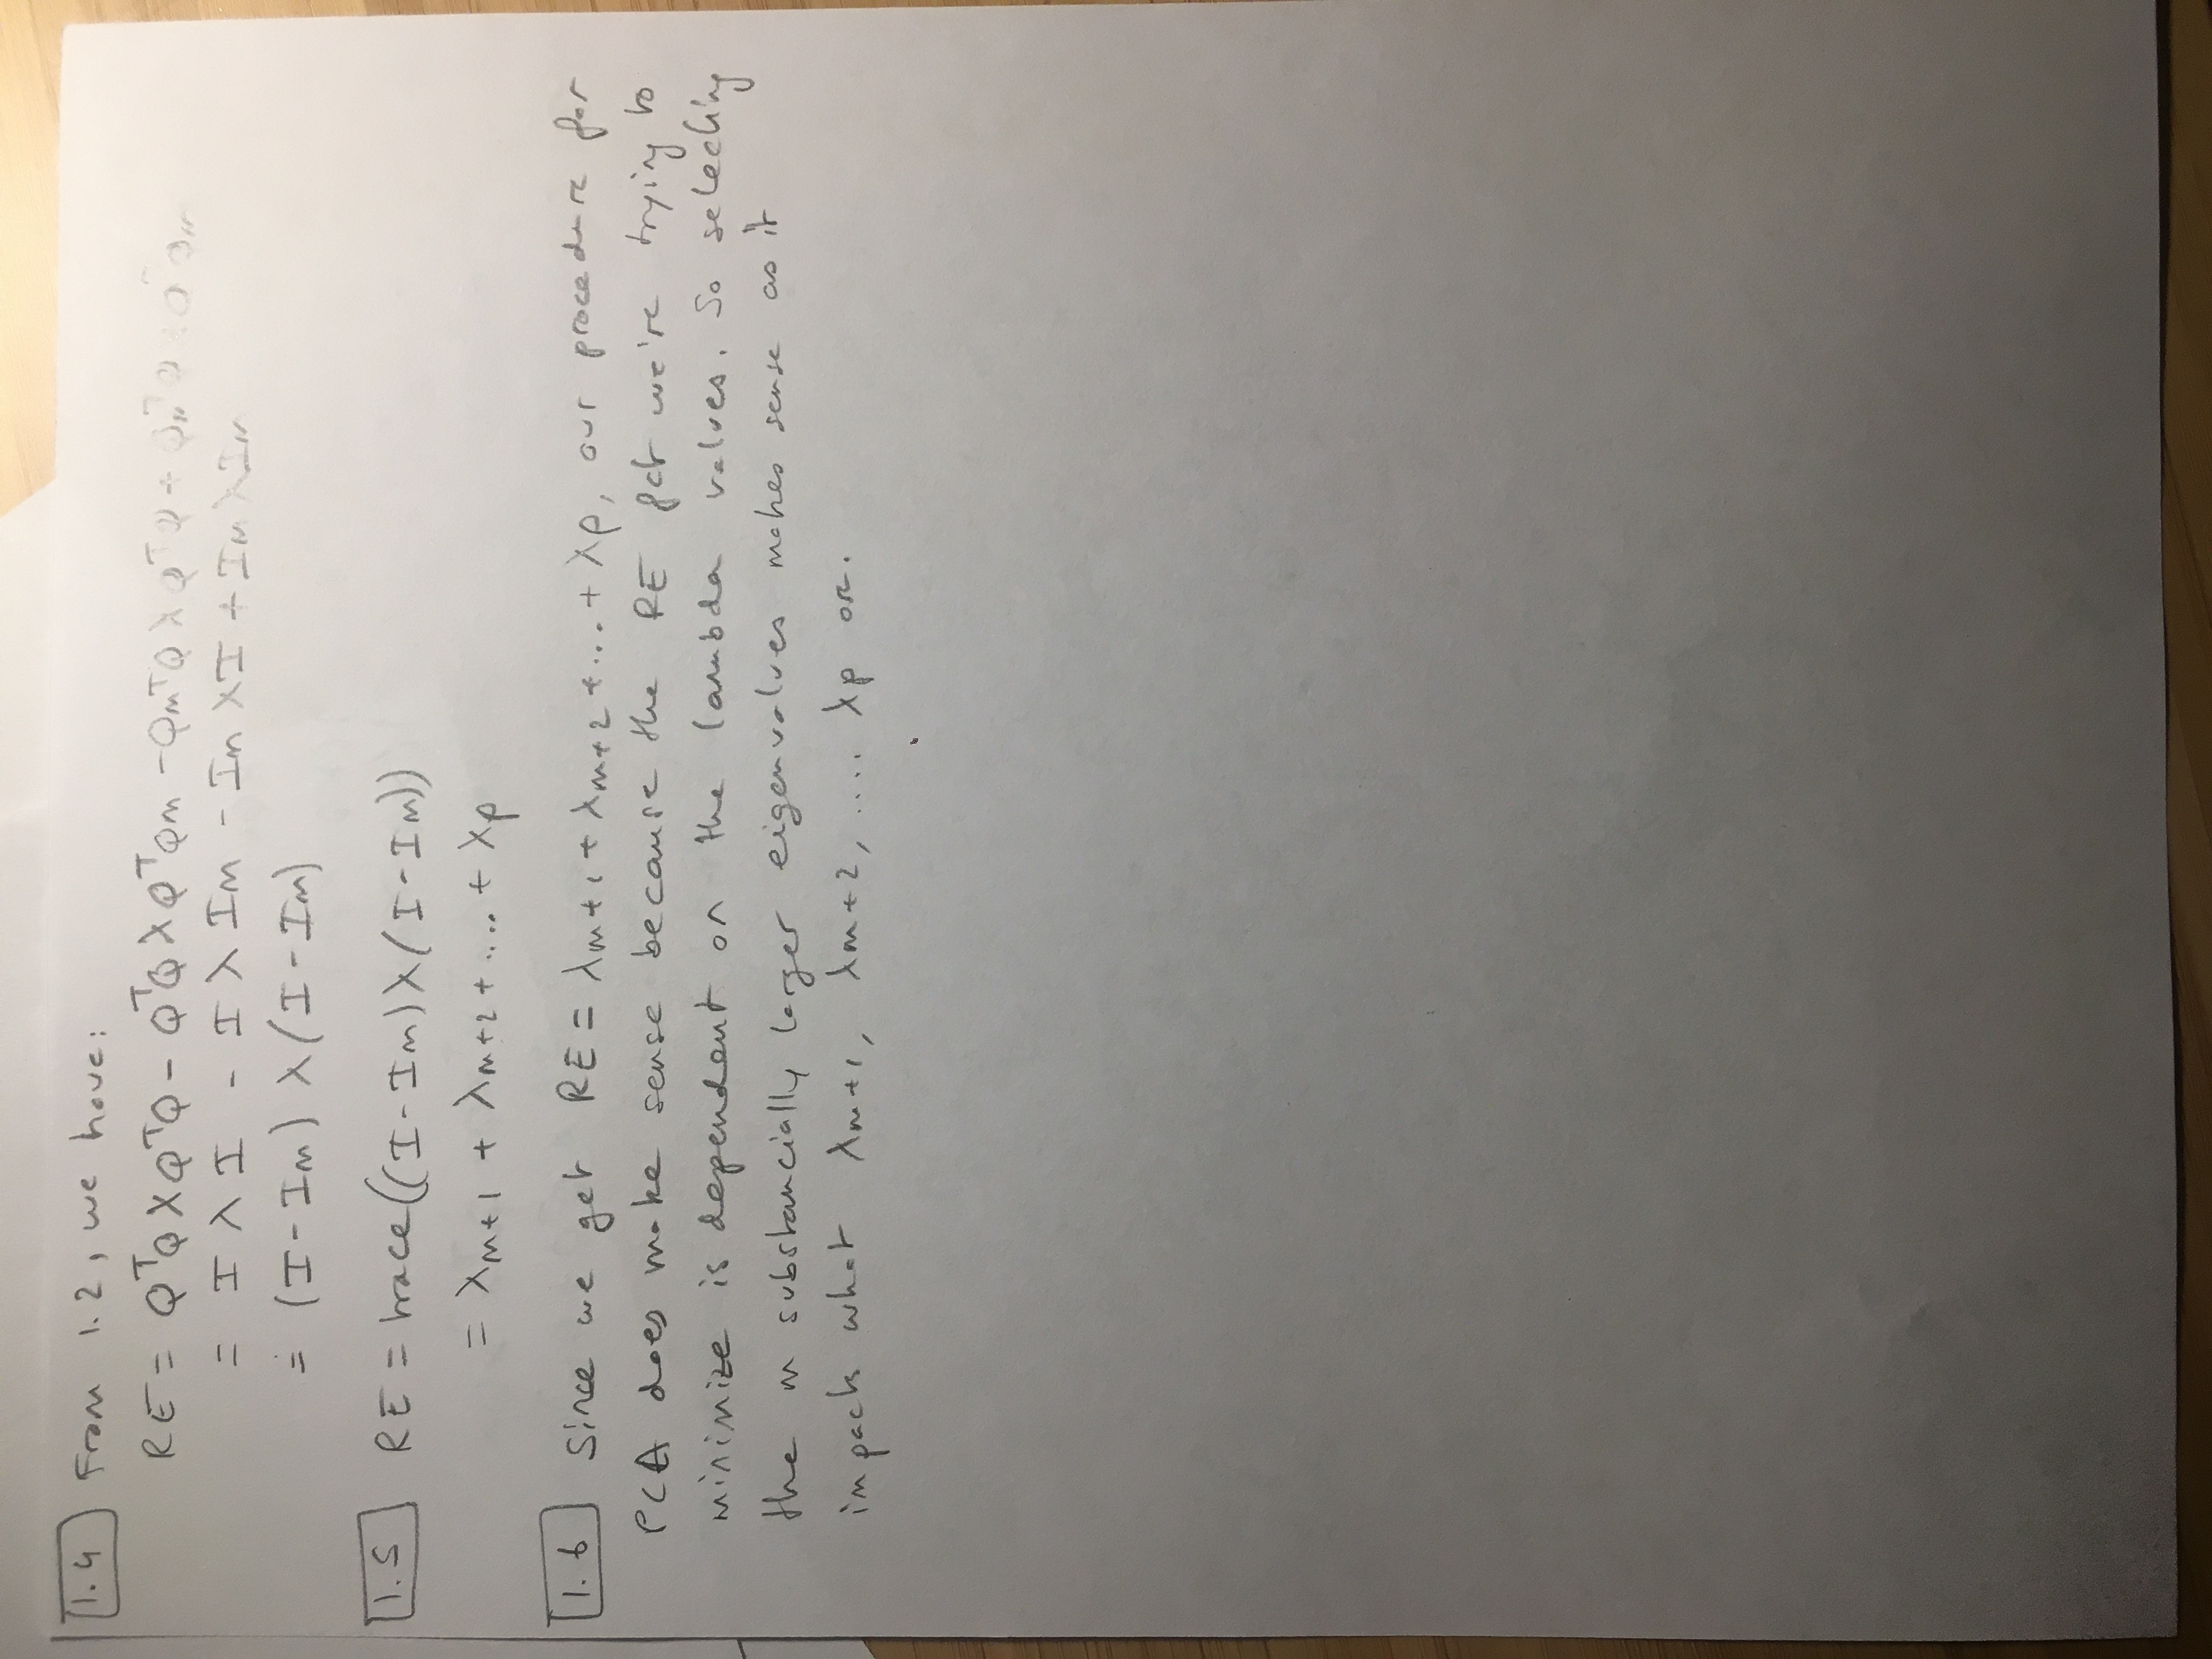 1.4 From 1.2, we have:
RE = QᵀQ λ QᵀQ - QᵀQ λ QᵀQm - QmᵀQ λ QᵀQ + QmᵀQ λ QᵀQm
= I λ I - I λ Im - Im λ I + Im λ Im
= (I - Im) λ (I - Im)
1.5 RE = trace((I - Im) λ (I - Im))
= λm+1 + λm+2 + .... + λp
1.6 Since we get RE = λm+1 + λm+2 + ... + λp, our procedure for
PCA does make sense because the RE fct we're trying to
minimize is dependent on the lambda values. So selecting
the m substancially larger eigenvalues makes sense as it
impacts what λm+1, λm+2, .... λp are.